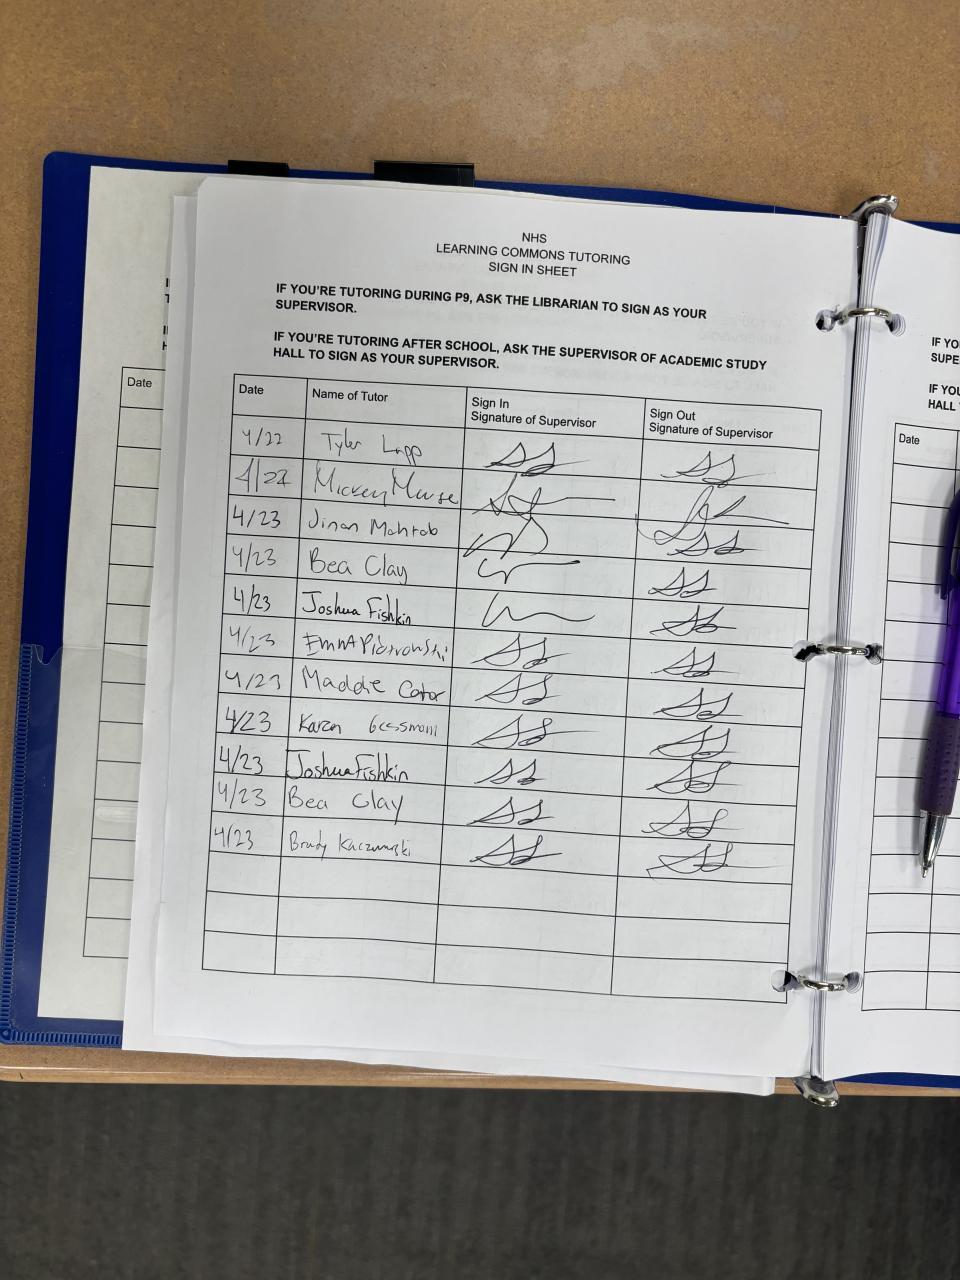 NHS
LEARNING COMMONS TUTORING
SIGN IN SHEET
IF YOU'RE TUTORING DURING P9, ASK THE LIBRARIAN TO SIGN AS YOUR
SUPERVISOR.
IF YOU'RE TUTORING AFTER SCHOOL, ASK THE SUPERVISOR OF ACADEMIC STUDY
HALL TO SIGN AS YOUR SUPERVISOR.
Date Name of Tutor Sign In Signature of Supervisor Sign Out Signature of Supervisor
4/22 Tyler Lapp
4/22 Mickey Mouse
4/23 Jinan Mahrab
4/23 Bea Clay
4/23 Joshua Fishkin
4/23 Emma Piotrowski
4/23 Maddie
4/23 Karen
4/23 Joshua Fishkin
4/23 Bea Clay
4/23 Brady Kaczmarski
Date
IF YO
SUPE
IF YOU
HALL
Date